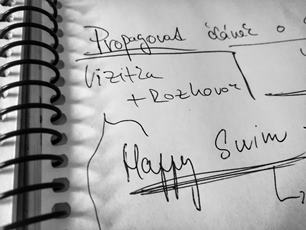 Propagovat článek o
Vizitka
+ Rozhovor
Happy Swim